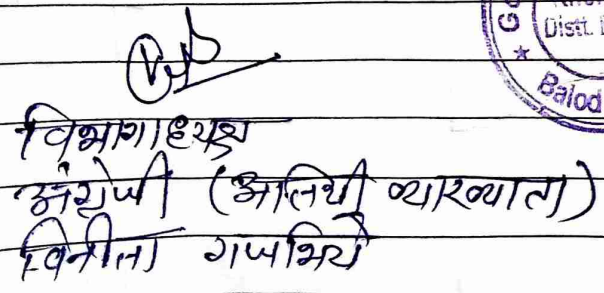 Distt.
Balod
विभागाध्यक्ष
अंग्रेजी (अतिथी व्याख्याता)
विनीता गजभिये